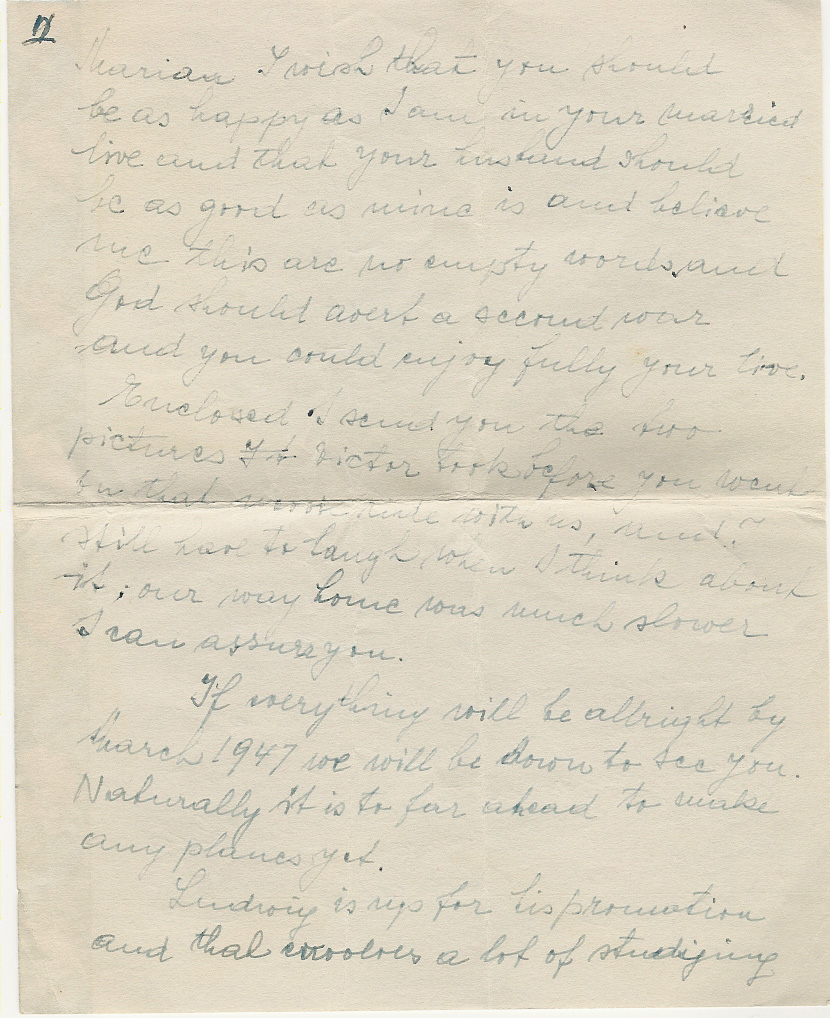 Marian I wish that you should
be as happy as I am in your married
live and that your husband should
be as good as mine is and believe
me this are no empty words, and
God should avert a second war
and you could enjoy fully your live.
Enclosed I send you the two
pictures Victor took before you went
on that ride with us, and I
still have to laugh when I think about
it; our way home was much slower
I can assure you.
If everything will be allright by
March 1947 we will be down to see you.
Naturally it is to far ahead to make
any planes yet.
Ludwig is up for his promotion
and that envolves a lot of studijing